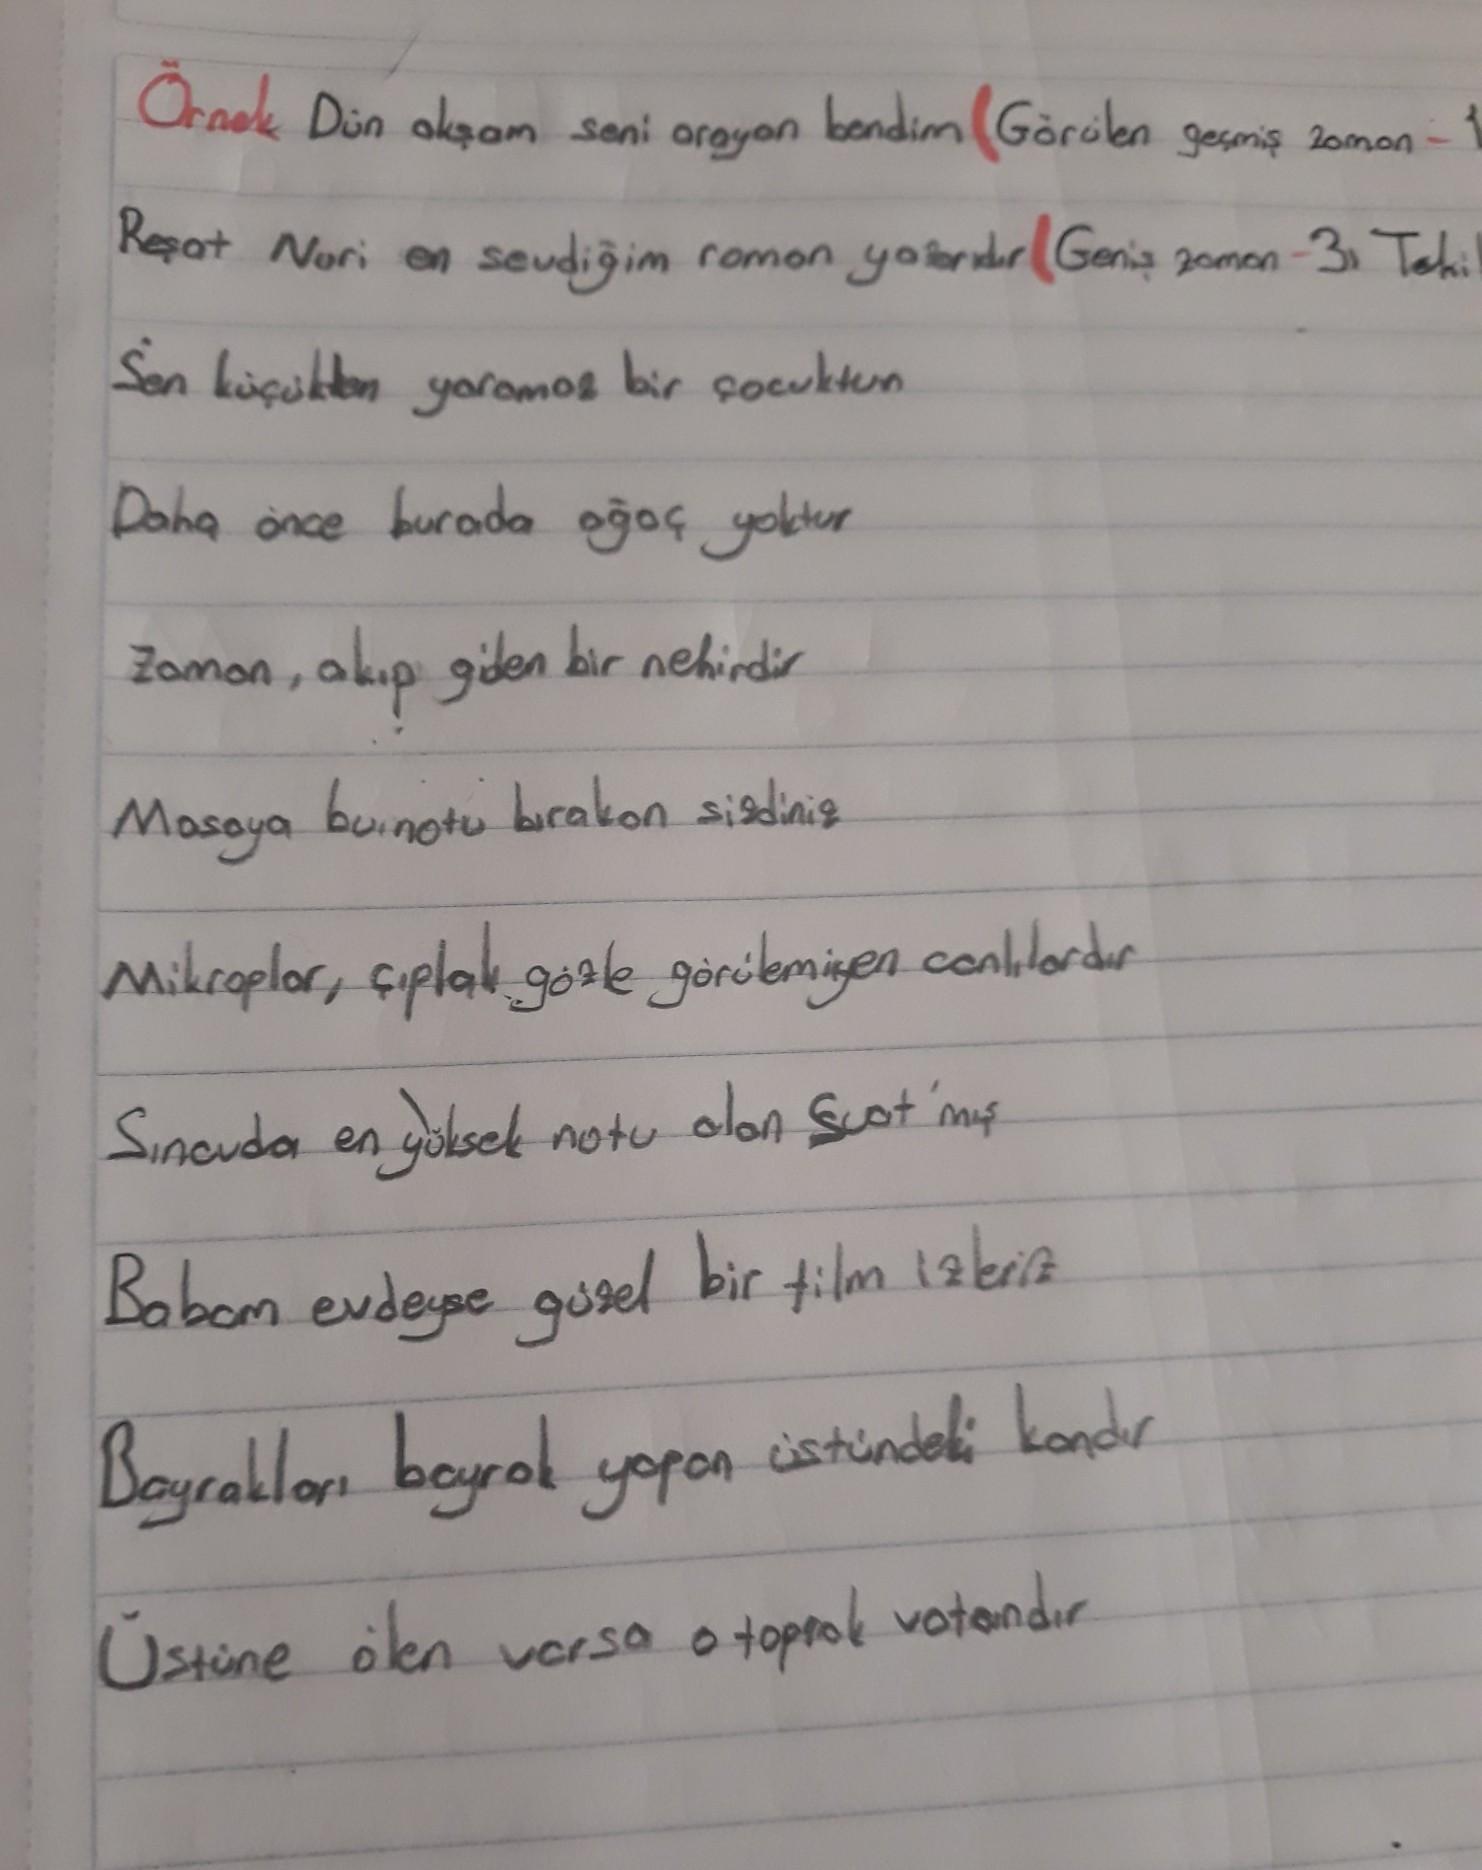 Örnek Dün akşam seni arayan bendim (Görülen geçmiş zaman - 1
Reşat Nuri en sevdiğim roman yazarıdır (Geniş zaman - 3. Tekil
Sen küçükken yaramaz bir çocuktun
Daha önce burada ağaç yoktur
Zaman, akıp giden bir nehirdir
Masaya bu notu bırakan sizdiniz
Mikroplar, çıplak gözle görülemiyen canlılardır
Sınavda en yüksek notu alan Suat'mış
Babam evdeyse güzel bir film izleriz
Bayrakları bayrak yapan üstündeki kandır
Üstüne ölen varsa o toprak vatandır